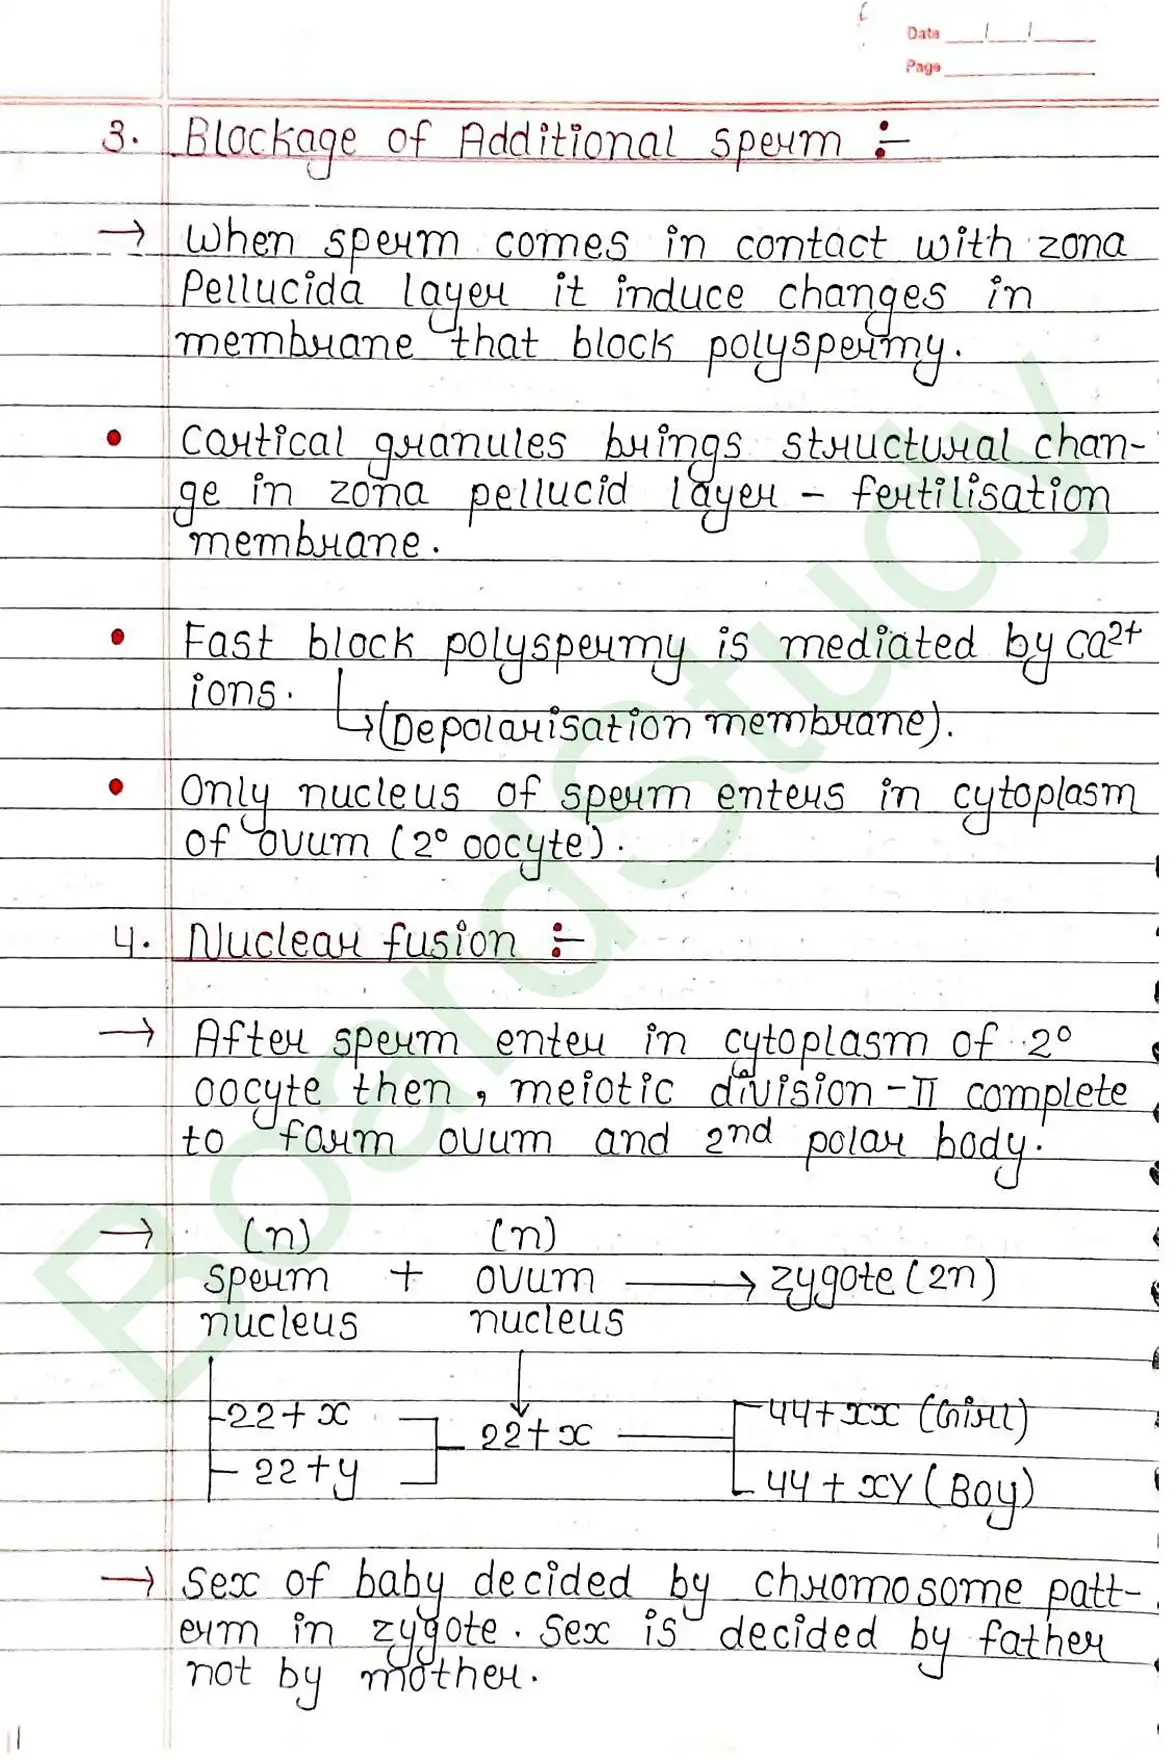 Date / /
Page
3. Blockage of Additional sperm :-
→ When sperm comes in contact with zona
Pellucida layer it induce changes in
membrane that block polyspermy.
• Cortical granules brings structural chan-
ge in zona pellucid layer - fertilisation
membrane.
• Fast block polyspermy is mediated by Ca2+
ions.
↳(Depolarisation membrane).
• Only nucleus of sperm enters in cytoplasm
of ovum (2° oocyte).
4. Nuclear fusion :-
→ After sperm enter in cytoplasm of 2°
oocyte then, meiotic division-II complete
to form ovum and 2nd polar body.
→ (n) (n)
sperm + ovum → zygote (2n)
nucleus nucleus
22+x 44+xx (Girl)
22+x
22+y 44+xy (Boy)
→ Sex of baby decided by chromosome patt-
erm in zygote. Sex is decided by father
not by mother.
BoardStudy